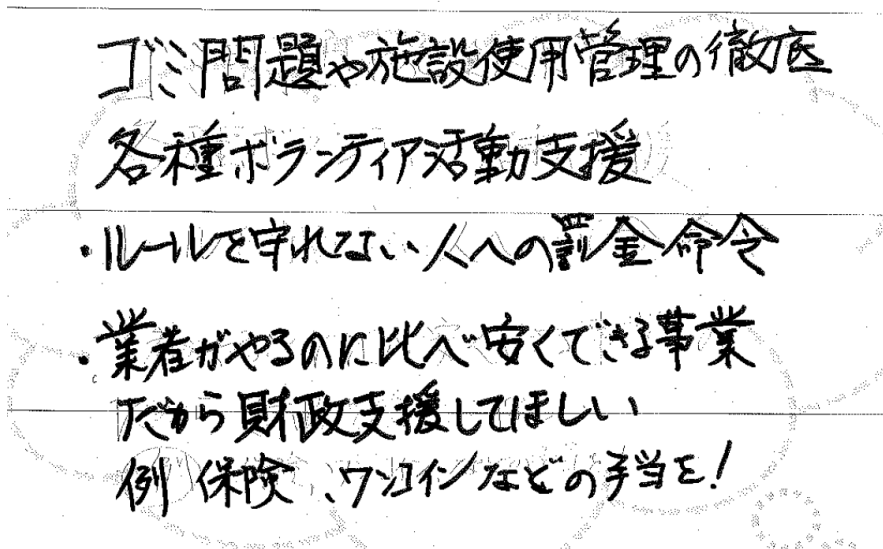 ゴミ問題や施設使用管理の徹底
各種ボランティア活動支援
・ルールを守れない人への罰金命令
・業者がやるのに比べ安くできる事業
だから財政支援してほしい
例 保険、ワンコインなどの手当を!